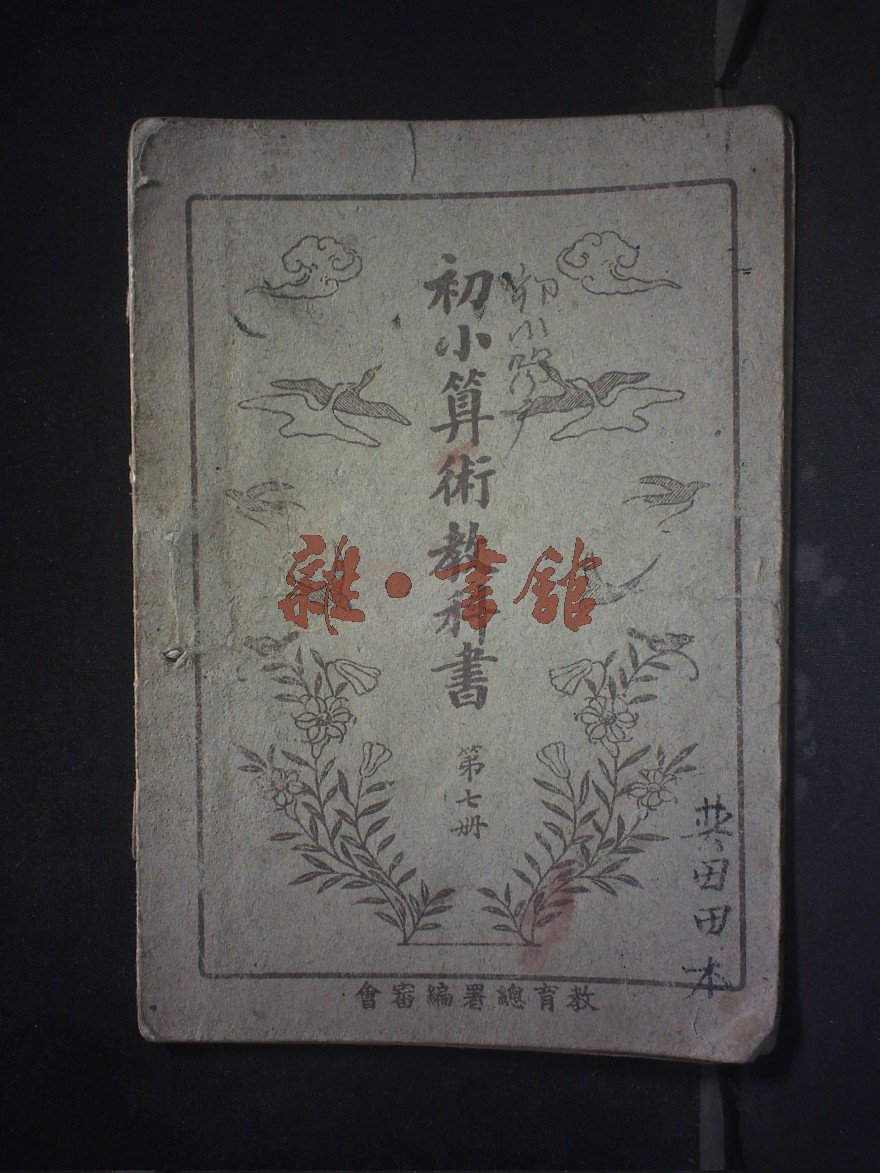 初小算術教科書
第七冊
教育總署編審會
初小
田田本
雜·書館